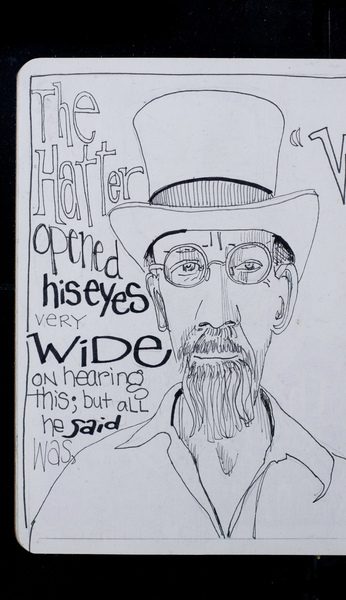 The
Hatter
opened
his eyes
VERY
WiDE
ON hearing
this; but aLL
he said
was,
"W